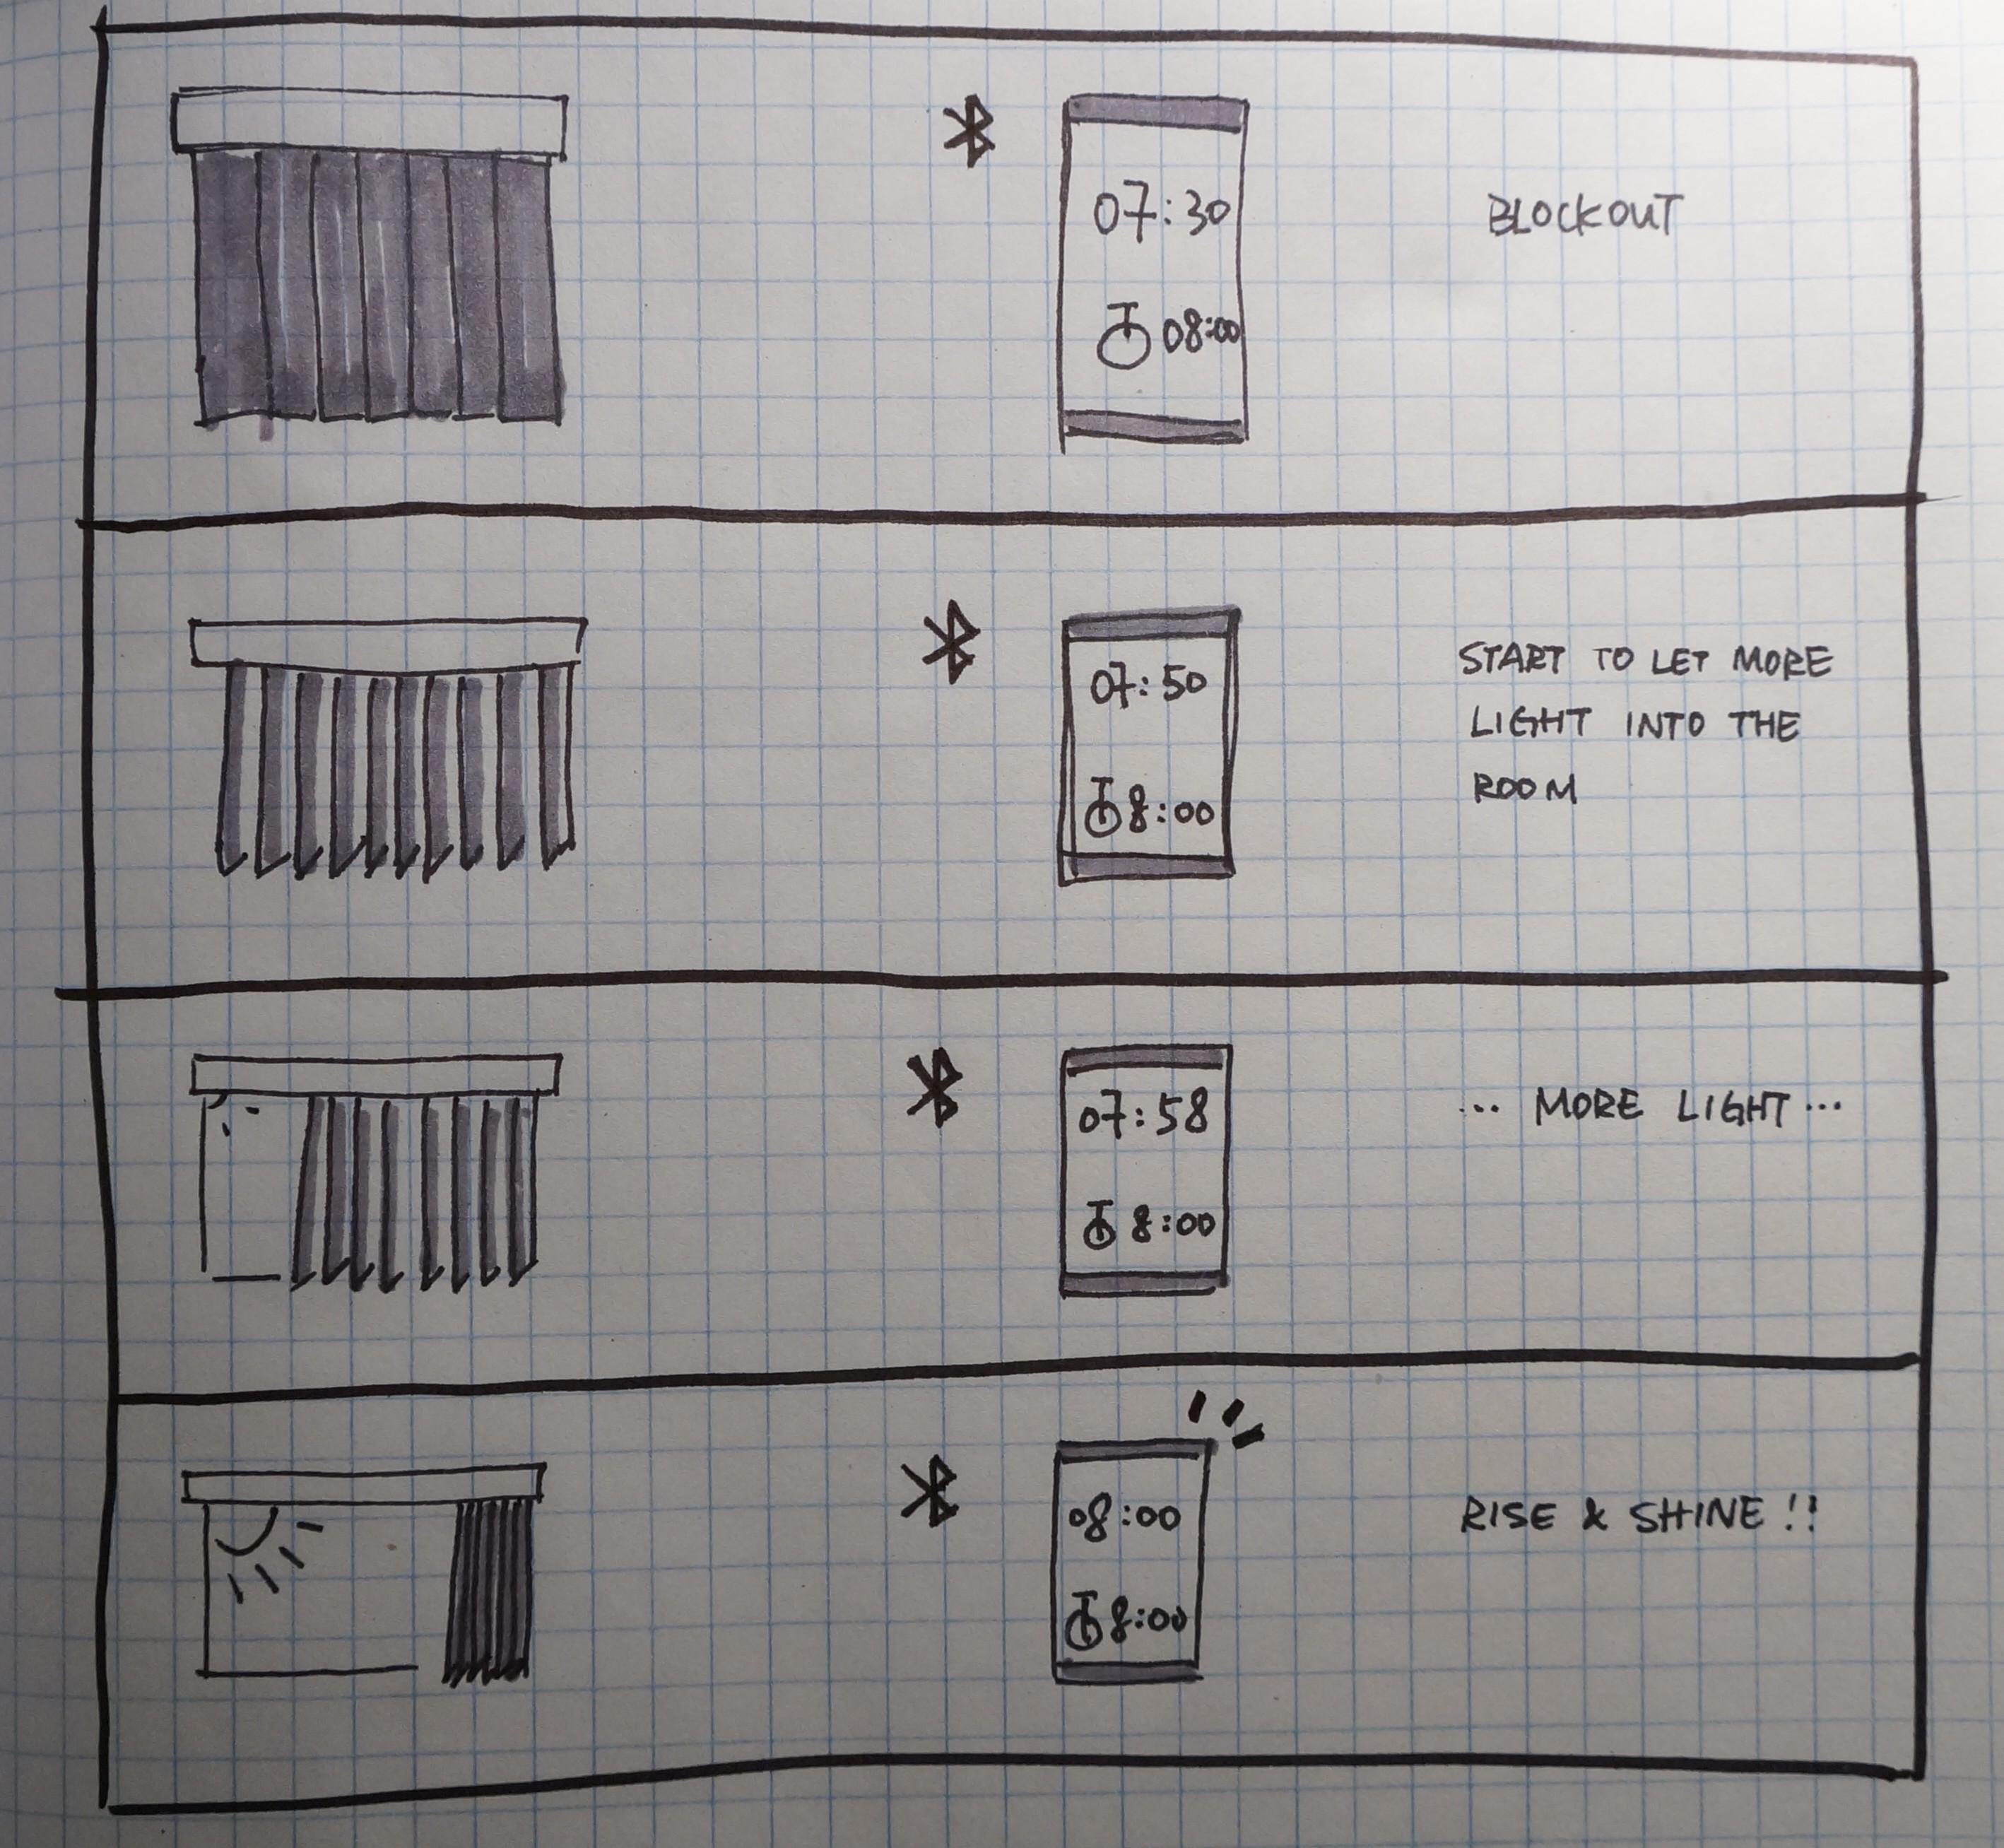 07:30
08:00
BLOCKOUT
07:50
8:00
START TO LET MORE
LIGHT INTO THE
ROOM
07:58
8:00
... MORE LIGHT ...
08:00
8:00
RISE & SHINE !!